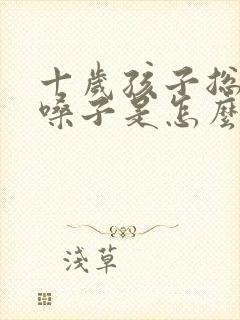 十歲孩子總
嗓子是怎麼
淺草